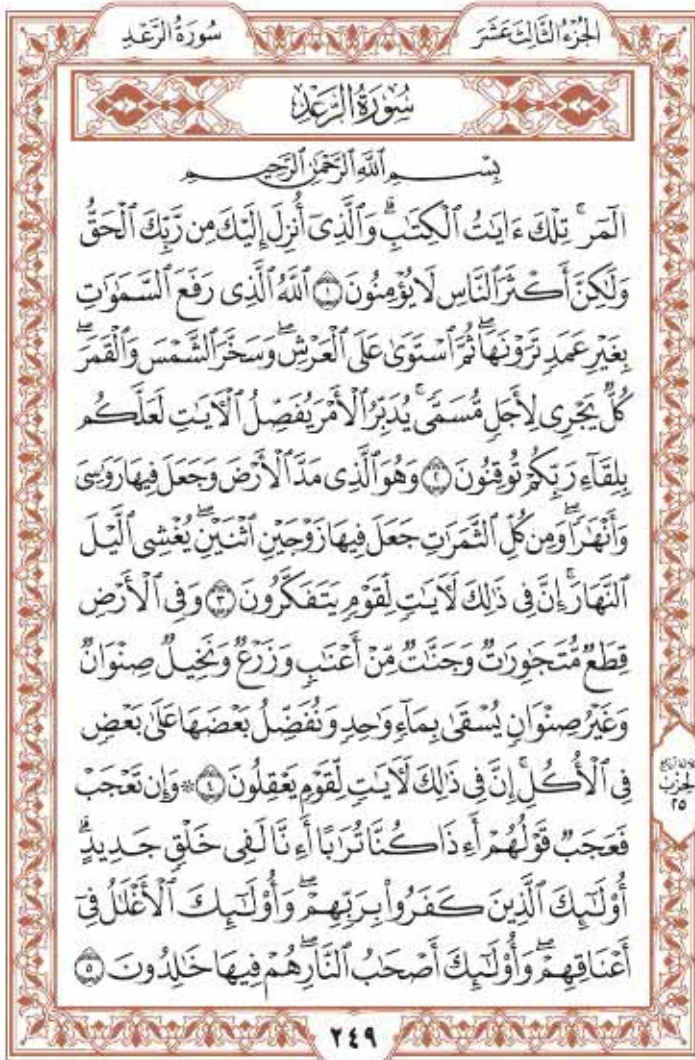 الجُزْءُ الثَّالِثَ عَشَرَ
سُورَةُ الرَّعْدِ
سُورَةُ الرَّعْدِ
بِسْمِ ٱللَّهِ ٱلرَّحْمَٰنِ ٱلرَّحِيمِ
الٓمٓرۚ تِلۡكَ ءَايَٰتُ ٱلۡكِتَٰبِۗ وَٱلَّذِيٓ أُنزِلَ إِلَيۡكَ مِن رَّبِّكَ ٱلۡحَقُّ
وَلَٰكِنَّ أَكۡثَرَ ٱلنَّاسِ لَا يُؤۡمِنُونَ ١ ٱللَّهُ ٱلَّذِي رَفَعَ ٱلسَّمَٰوَٰتِ
بِغَيۡرِ عَمَدٖ تَرَوۡنَهَاۖ ثُمَّ ٱسۡتَوَىٰ عَلَى ٱلۡعَرۡشِۖ وَسَخَّرَ ٱلشَّمۡسَ وَٱلۡقَمَرَۖ
كُلّٞ يَجۡرِي لِأَجَلٖ مُّسَمّٗىۚ يُدَبِّرُ ٱلۡأَمۡرَ يُفَصِّلُ ٱلۡأٓيَٰتِ لَعَلَّكُم
بِلِقَآءِ رَبِّكُمۡ تُوقِنُونَ ٢ وَهُوَ ٱلَّذِي مَدَّ ٱلۡأَرۡضَ وَجَعَلَ فِيهَا رَوَٰسِيَ
وَأَنۡهَٰرٗاۖ وَمِن كُلِّ ٱلثَّمَرَٰتِ جَعَلَ فِيهَا زَوۡجَيۡنِ ٱثۡنَيۡنِۖ يُغۡشِي ٱلَّيۡلَ
ٱلنَّهَارَۚ إِنَّ فِي ذَٰلِكَ لَأٓيَٰتٖ لِّقَوۡمٖ يَتَفَكَّرُونَ ٣ وَفِي ٱلۡأَرۡضِ
قِطَعٞ مُّتَجَٰوِرَٰتٞ وَجَنَّٰتٞ مِّنۡ أَعۡنَٰبٖ وَزَرۡعٞ وَنَخِيلٞ صِنۡوَانٞ
وَغَيۡرُ صِنۡوَانٖ يُسۡقَىٰ بِمَآءٖ وَٰحِدٖ وَنُفَضِّلُ بَعۡضَهَا عَلَىٰ بَعۡضٖ
فِي ٱلۡأُكُلِۚ إِنَّ فِي ذَٰلِكَ لَأٓيَٰتٖ لِّقَوۡمٖ يَعۡقِلُونَ ٤ ۞ وَإِن تَعۡجَبۡ
فَعَجَبٞ قَوۡلُهُمۡ أَءِذَا كُنَّا تُرَٰبًا أَءِنَّا لَفِي خَلۡقٖ جَدِيدٍۗ
أُوْلَٰٓئِكَ ٱلَّذِينَ كَفَرُواْ بِرَبِّهِمۡۖ وَأُوْلَٰٓئِكَ ٱلۡأَغۡلَٰلُ فِيٓ
أَعۡنَاقِهِمۡۖ وَأُوْلَٰٓئِكَ أَصۡحَٰبُ ٱلنَّارِۖ هُمۡ فِيهَا خَٰلِدُونَ ٥
الحِزْبُ
٢٥
٢٤٩